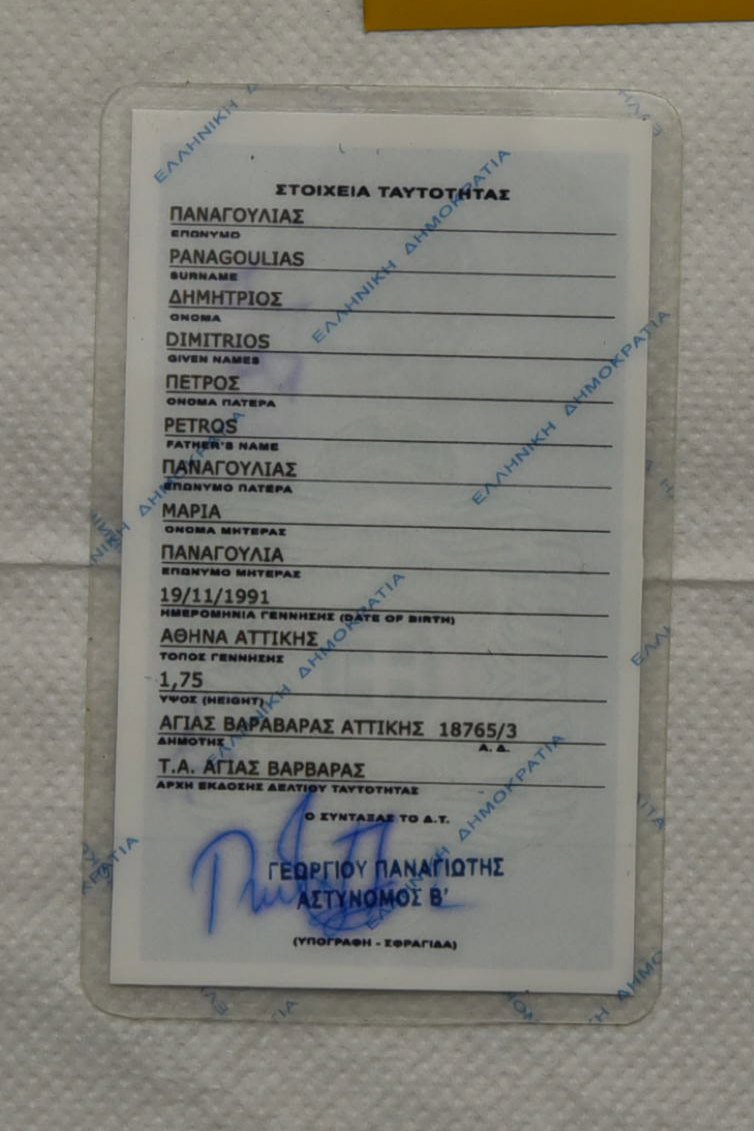 ΣΤΟΙΧΕΙΑ ΤΑΥΤΟΤΗΤΑΣ
ΠΑΝΑΓΟΥΛΙΑΣ
ΕΠΩΝΥΜΟ
PANAGOULIAS
SURNAME
ΔΗΜΗΤΡΙΟΣ
ΟΝΟΜΑ
DIMITRIOS
GIVEN NAMES
ΠΕΤΡΟΣ
ΟΝΟΜΑ ΠΑΤΕΡΑ
PETROS
FATHER'S NAME
ΠΑΝΑΓΟΥΛΙΑΣ
ΕΠΩΝΥΜΟ ΠΑΤΕΡΑ
ΜΑΡΙΑ
ΟΝΟΜΑ ΜΗΤΕΡΑΣ
ΠΑΝΑΓΟΥΛΙΑ
ΕΠΩΝΥΜΟ ΜΗΤΕΡΑΣ
19/11/1991
ΗΜΕΡΟΜΗΝΙΑ ΓΕΝΝΗΣΗΣ (DATE OF BIRTH)
ΑΘΗΝΑ ΑΤΤΙΚΗΣ
ΤΟΠΟΣ ΓΕΝΝΗΣΗΣ
1,75
ΥΨΟΣ (HEIGHT)
ΑΓΙΑΣ ΒΑΡΑΒΑΡΑΣ ΑΤΤΙΚΗΣ 18765/3
ΔΗΜΟΤΗΣ Α. Δ.
Τ.Α. ΑΓΙΑΣ ΒΑΡΒΑΡΑΣ
ΑΡΧΗ ΕΚΔΟΣΗΣ ΔΕΛΤΙΟΥ ΤΑΥΤΟΤΗΤΑΣ
Ο ΣΥΝΤΑΞΑΣ ΤΟ Δ.Τ.
ΓΕΩΡΓΙΟΥ ΠΑΝΑΓΙΩΤΗΣ
ΑΣΤΥΝΟΜΟΣ Β'
(ΥΠΟΓΡΑΦΗ - ΣΦΡΑΓΙΔΑ)
ΕΛΛΗΝΙΚΗ
ΕΛΛΗΝΙΚΗ ΔΗΜΟΚΡΑΤΙΑ
ΕΛΛΗΝΙΚΗ ΔΗΜΟΚΡΑΤΙΑ
ΕΛΛΗΝΙΚΗ ΔΗΜΟΚΡΑΤΙΑ
ΕΛΛΗΝΙΚΗ ΔΗΜΟΚΡΑΤΙΑ
ΕΛΛΗΝΙΚΗ ΔΗΜΟΚΡΑΤΙΑ